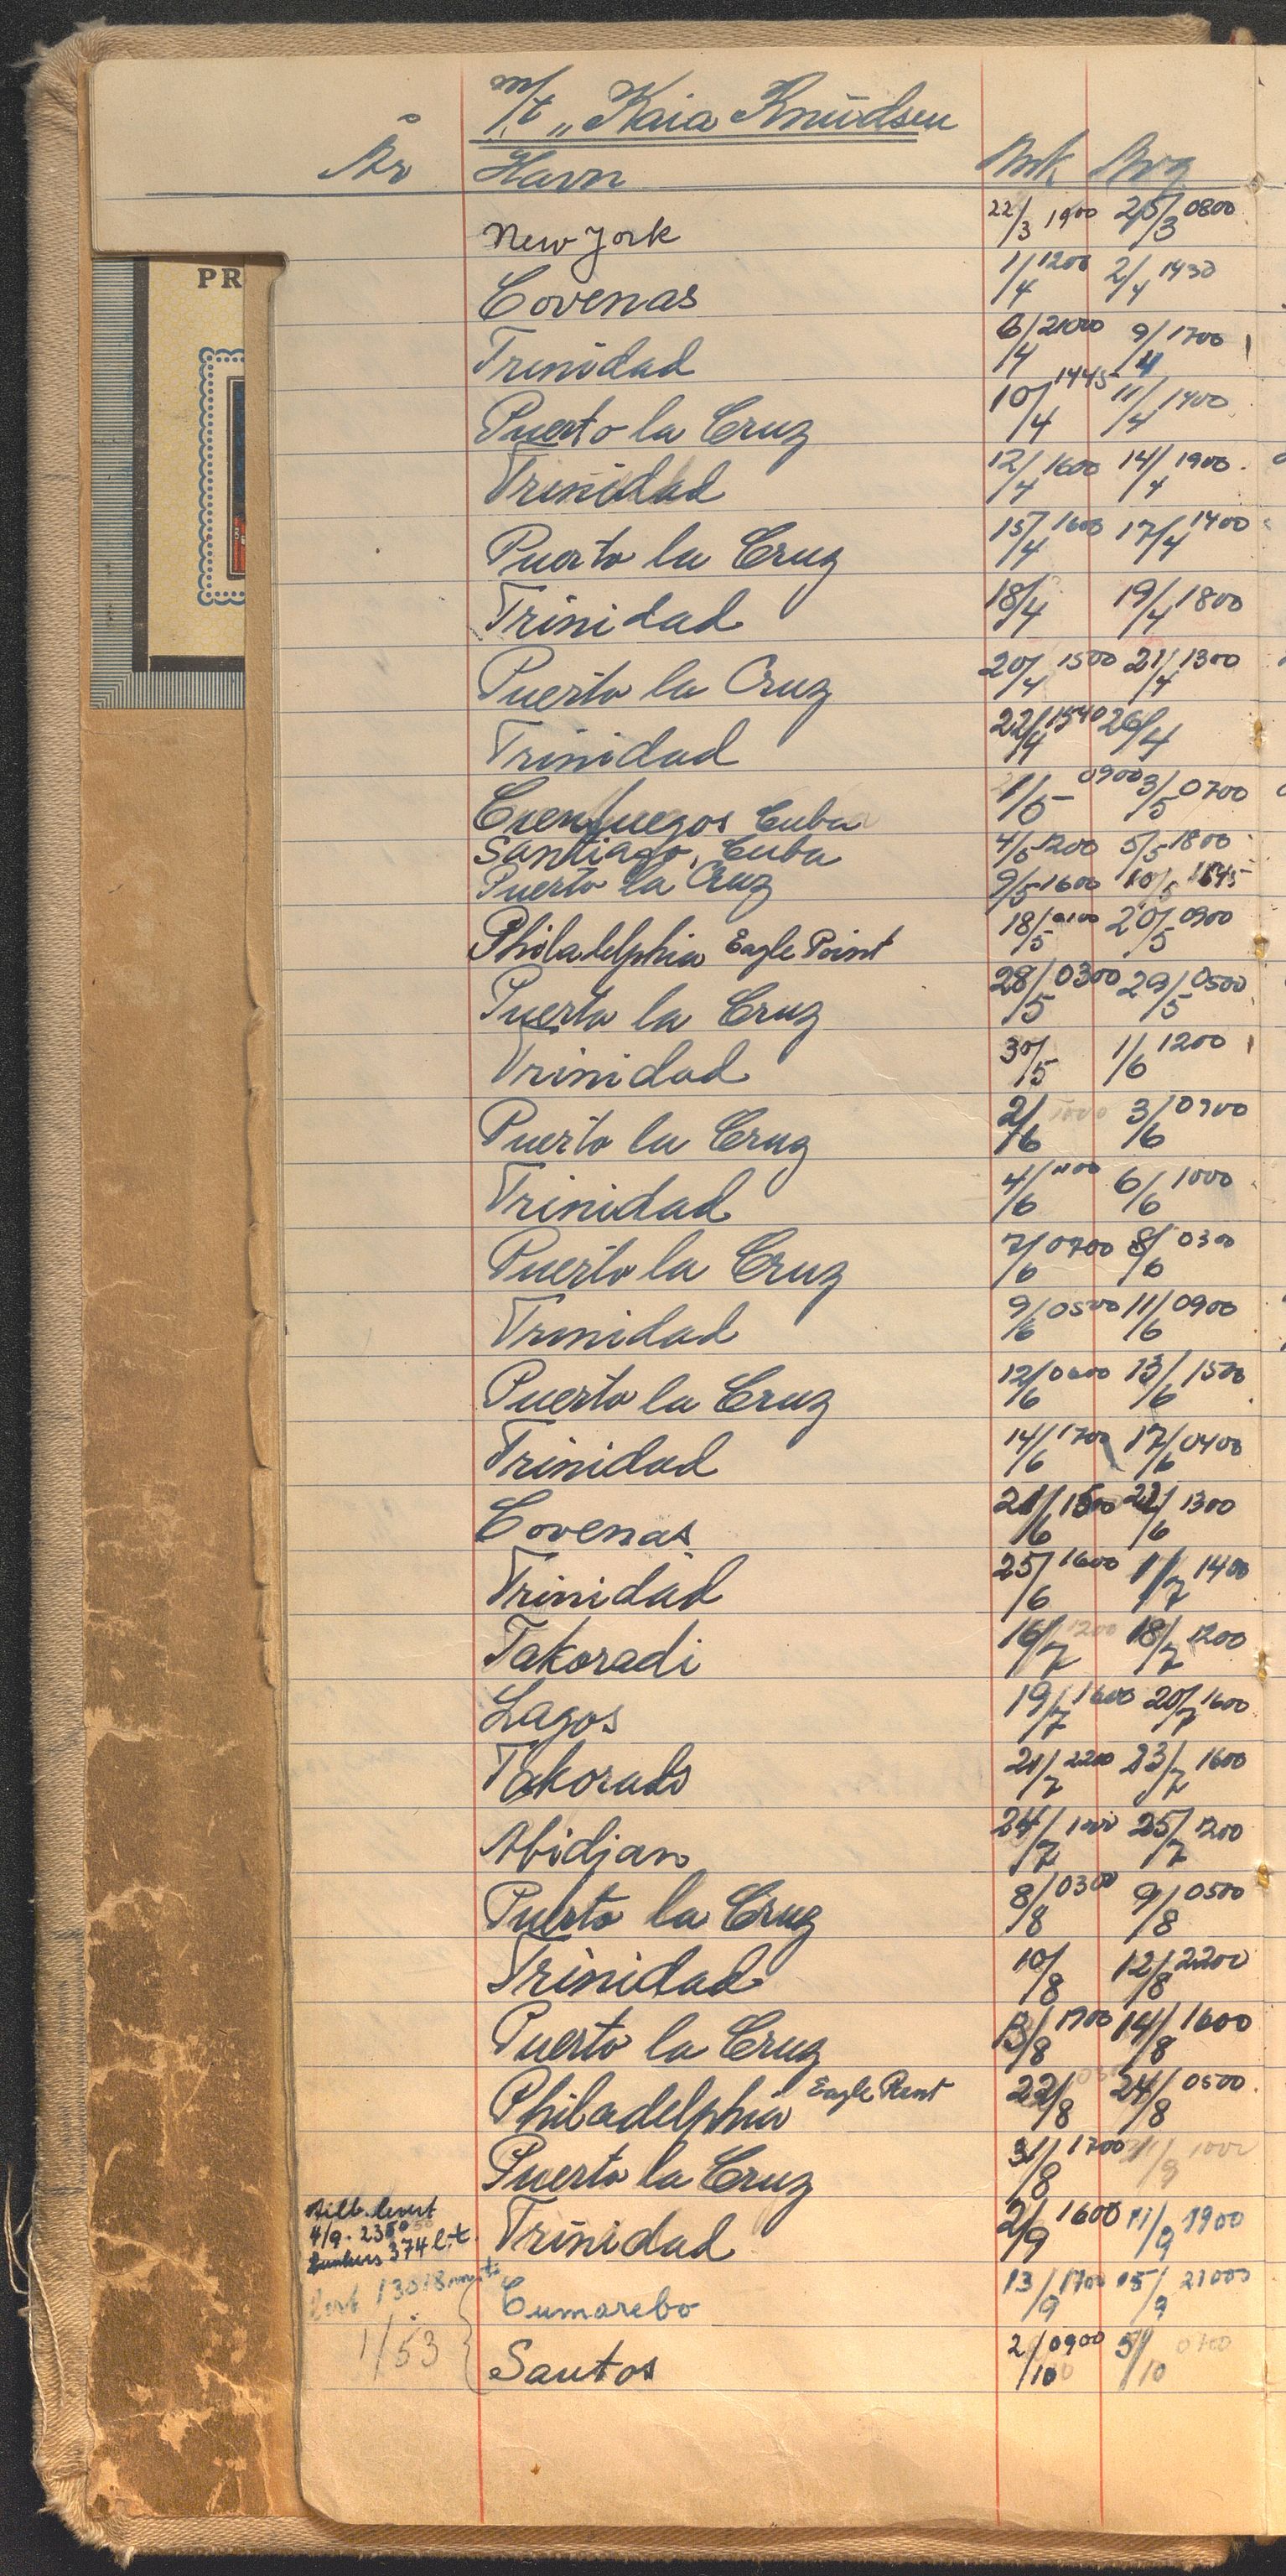 m/t „Kaia Knudsen
År Havn Ank Avg
PR
New York 22/3 1900 25/3 0800
Covenas 1/4 1200 2/4 1430
Trinidad 6/4 2100 9/4 1700
Puerto la Cruz 10/4 1445 11/4 1400
Trinidad 12/4 1600 14/4 1900
Puerto la Cruz 15/4 1600 17/4 1400
Trinidad 18/4 19/4 1800
Puerto la Cruz 20/4 1500 21/4 1300
Trinidad 22/4 1540 26/4
Cuenfuegos Cuba 1/5 0900 3/5 0700
Santiago, Cuba 4/5 1200 5/5 1800
Puerto la Cruz 9/5 1600 10/5 1645
Philadelphia Eagle Point 18/5 0100 20/5 0900
Puerto la Cruz 28/5 0300 29/5 0500
Trinidad 30/5 1/6 1200
Puerto la Cruz 2/6 1000 3/6 0900
Trinidad 4/6 1100 6/6 1000
Puerto la Cruz 7/6 0700 8/6 0300
Trinidad 9/6 0500 11/6 0900
Puerto la Cruz 12/6 0600 13/6 1500
Trinidad 14/6 1700 17/6 0400
Covenas 21/6 1500 22/6 1300
Trinidad 25/6 1600 1/7 1400
Takoradi 16/7 1200 18/7 1200
Lagos 19/7 1600 20/7 1600
Takoradi 21/7 2200 23/7 1600
Abidjan 24/7 25/7 1200
Puerto la Cruz 8/8 0300 9/8 0500
Trinidad 10/8 12/8 2200
Puerto la Cruz 13/8 1700 14/8 1600
Philadelphia Eagle Point 22/8 24/8 0500
Puerto la Cruz 31/8 1700 1/9 1000
Trinidad 2/9 1600 11/9 1900
4/9. 2350
Bunkers 374 l.t.
Cumarebo 13/9 1700 15/9 2100
1/53
Santos 2/10 0900 5/10 0700